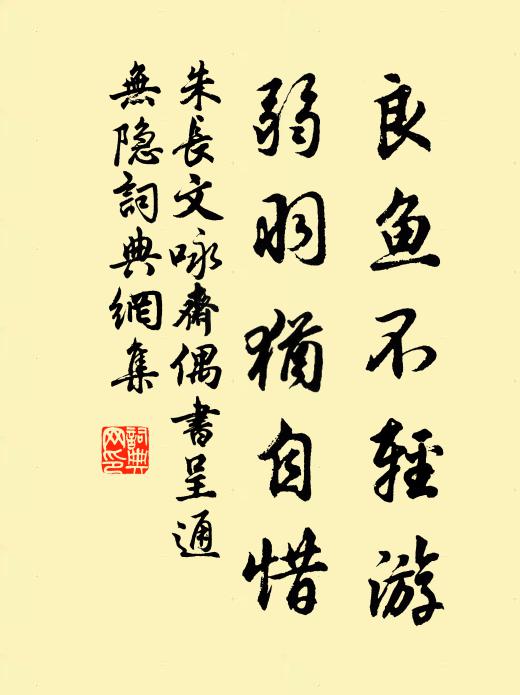 良鱼不輕游
弱羽猶自惜
朱長文咏齋偶書呈通
無隐詞典網集
詞典網印